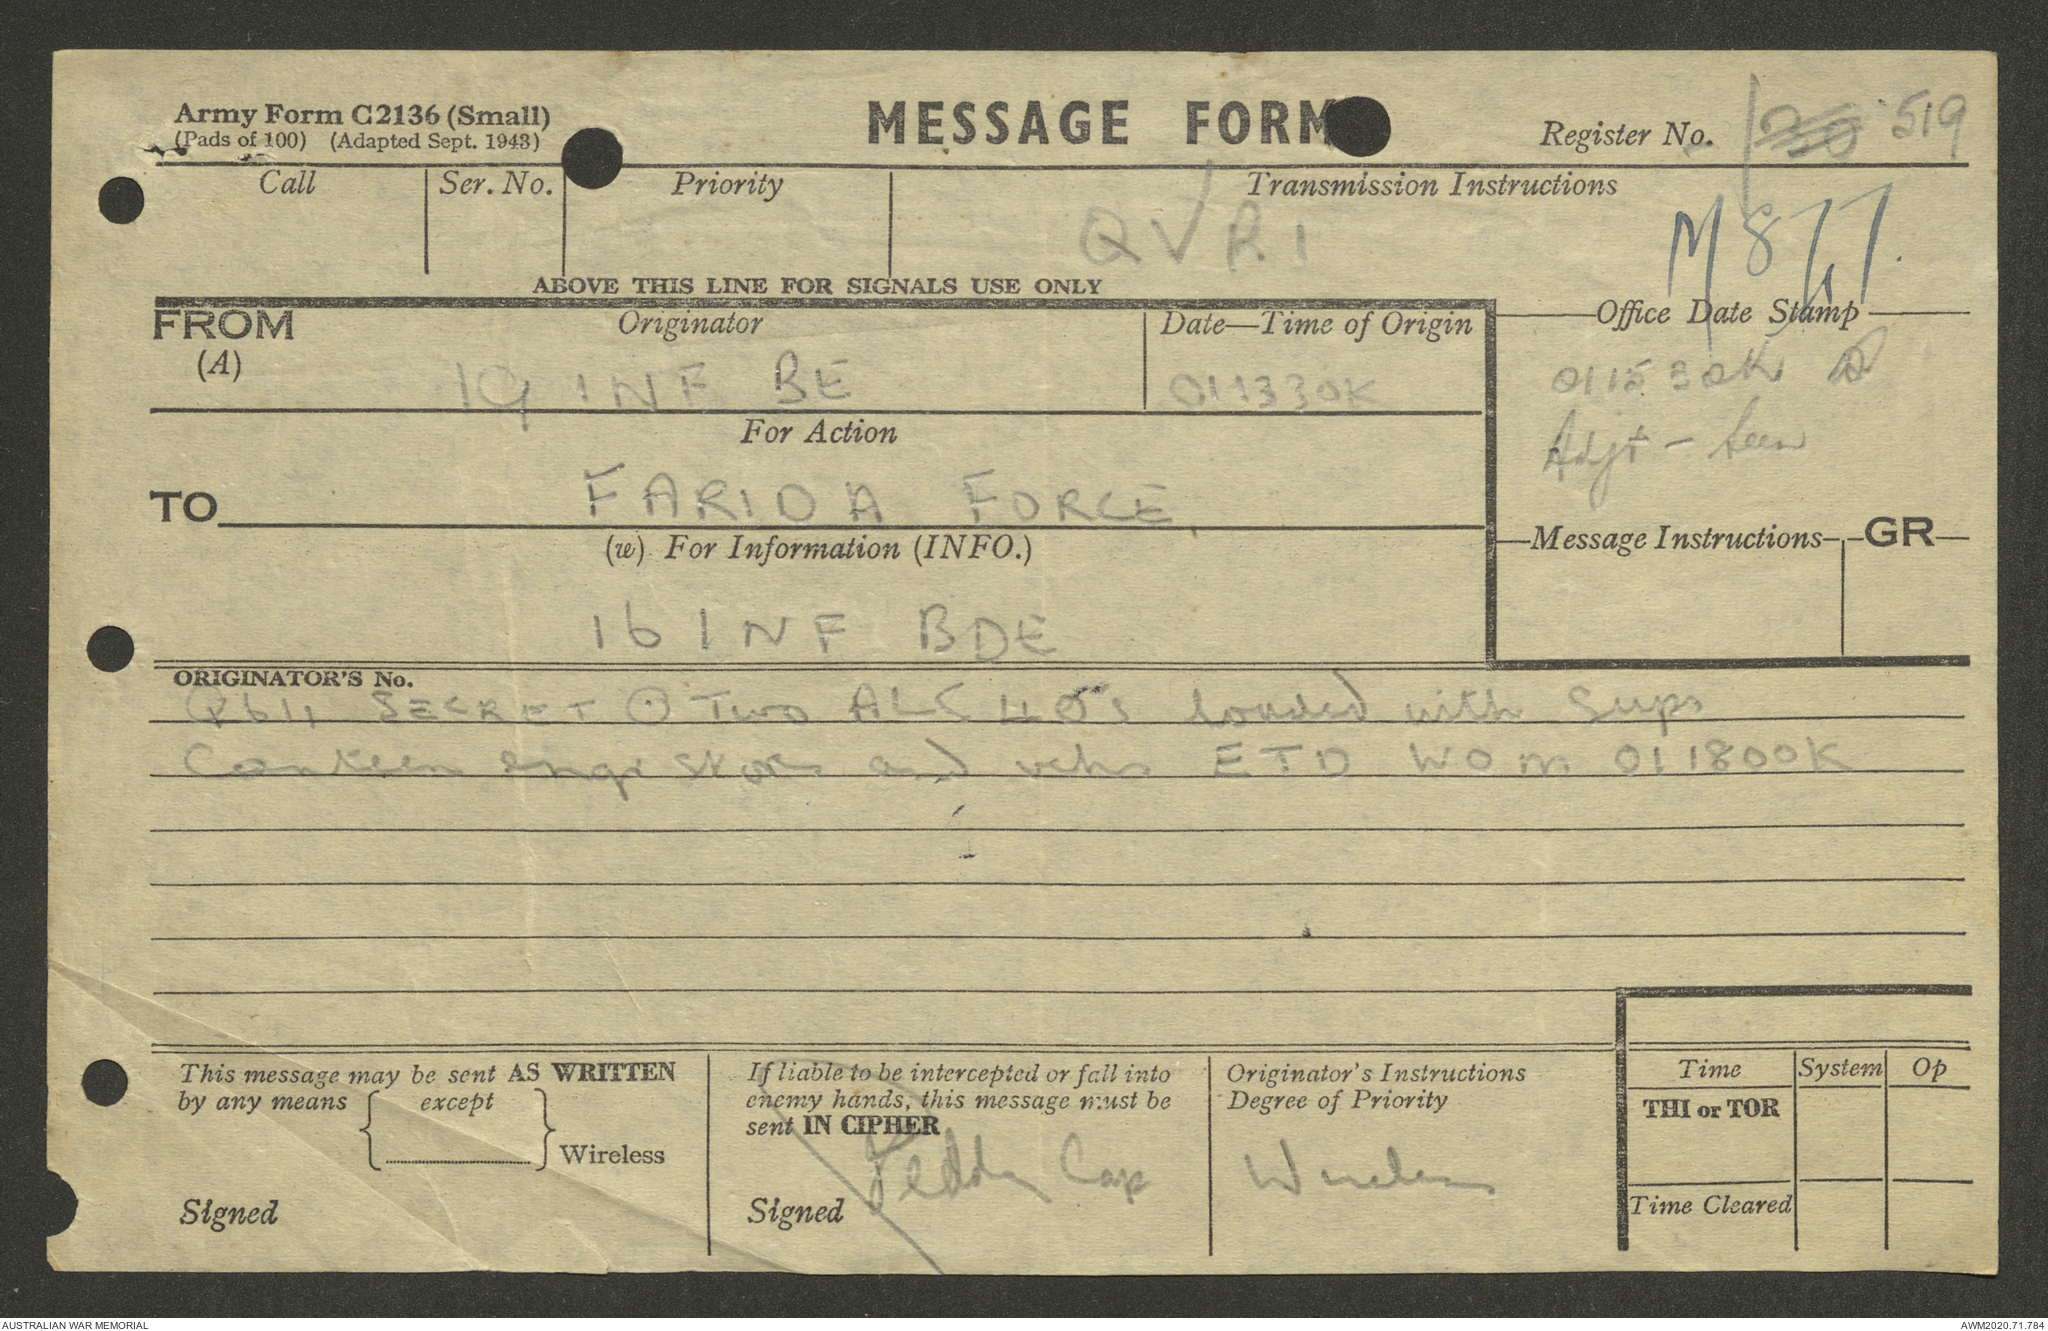 Army Form C2136 (Small)
(Pads of 100) (Adapted Sept. 1943)
MESSAGE FORM
Register No. 519
Call
Ser. No.
Priority
Transmission Instructions
QVR1
M877.
ABOVE THIS LINE FOR SIGNALS USE ONLY
FROM
(A)
Originator
19 INF BE
Date—Time of Origin
011330K
Office Date Stamp
011530K
Adjt - Seen
For Action
TO
FARIDA FORCE
(w) For Information (INFO.)
16 INF BDE
Message Instructions
GR
ORIGINATOR'S No.
Q611 SECRET Two ALC 40's loaded with Sups
Canteen engr stores and vehs ETD WOM 011800K
This message may be sent AS WRITTEN
by any means except
Wireless
Signed
If liable to be intercepted or fall into
enemy hands, this message must be
sent IN CIPHER
Cap
Signed
Originator's Instructions
Degree of Priority
Wireless
Time
System
Op
THI or TOR
Time Cleared
AUSTRALIAN WAR MEMORIAL
AWM2020.71.784